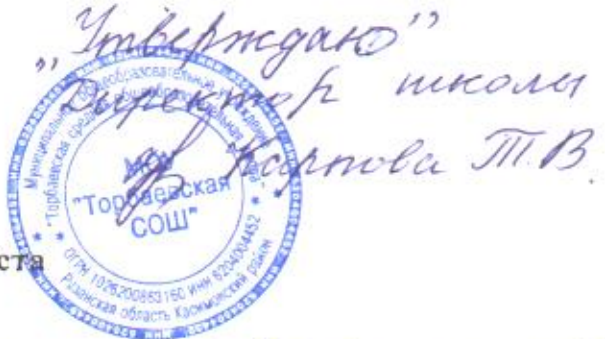 "Утверждаю"
Директор школы
Карпова Т.В.
Муниципальное общеобразовательное учреждение
"Торбаевская средняя общеобразовательная школа"
МОУ
"Торбаевская
СОШ"
ОГРН 1026200863160 ИНН 6204004452
Рязанская область Касимовский район
ста